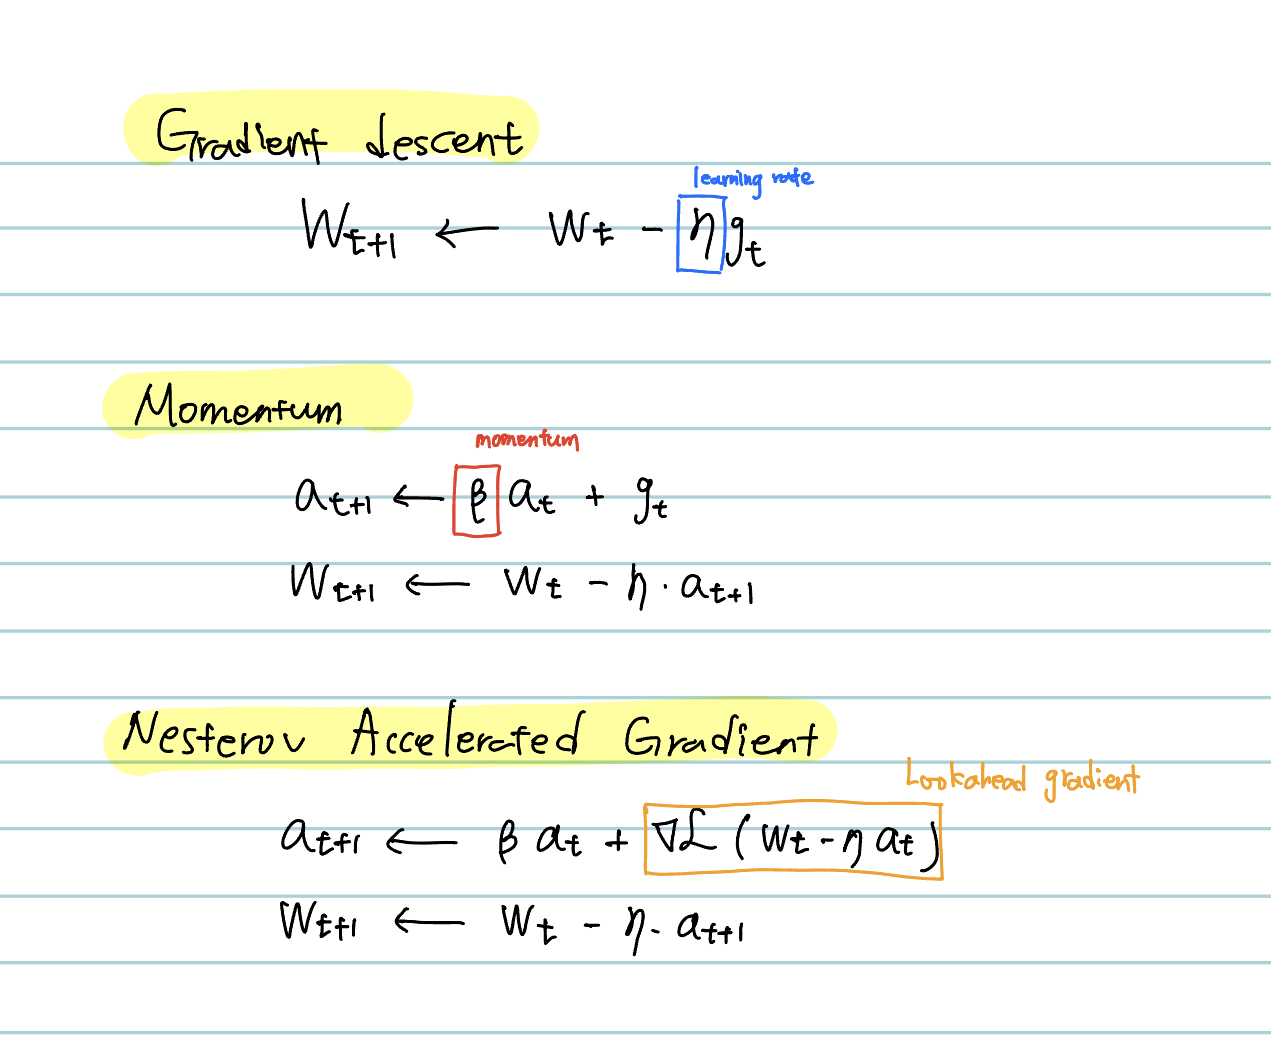 Gradient descent
learning rate
W_{t+1} ← W_t - η g_t
Momentum
momentum
a_{t+1} ← β a_t + g_t
W_{t+1} ← W_t - η · a_{t+1}
Nesterov Accelerated Gradient
Lookahead gradient
a_{t+1} ← β a_t + ∇ℒ (W_t - η a_t)
W_{t+1} ← W_t - η · a_{t+1}